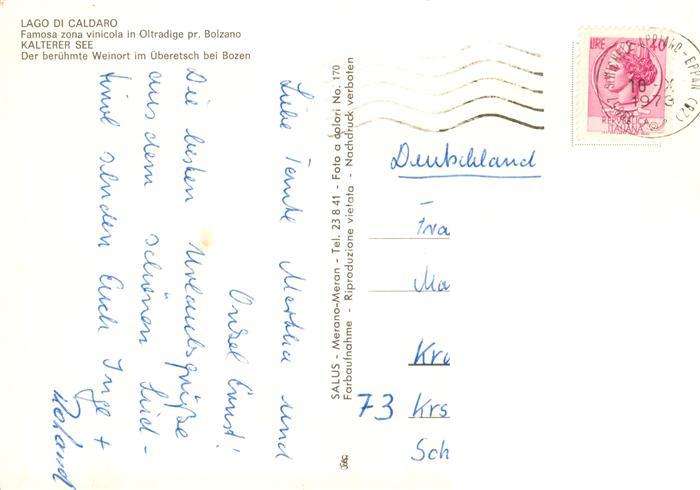 LAGO DI CALDARO
Famosa zona vinicola in Oltradige pr. Bolzano
KALTERER SEE
Der berühmte Weinort im Überetsch bei Bozen
Liebe Tante Martha und
Onkel Ernst!
Die besten Urlaubsgrüße
aus dem schönen Süd-
tirol senden Euch Inge +
Roland
SALUS - Merano-Meran - Tel. 23 8 41 - Foto a colori No. 170
Farbaufnahme - Riproduzione vietata - Nachdruck verboten
LIRE 40
REPUBBLICA
ITALIANA
APPIANO-EPPAN
Deutschland
Fra
Ma
Kro
73 Krs
Sch